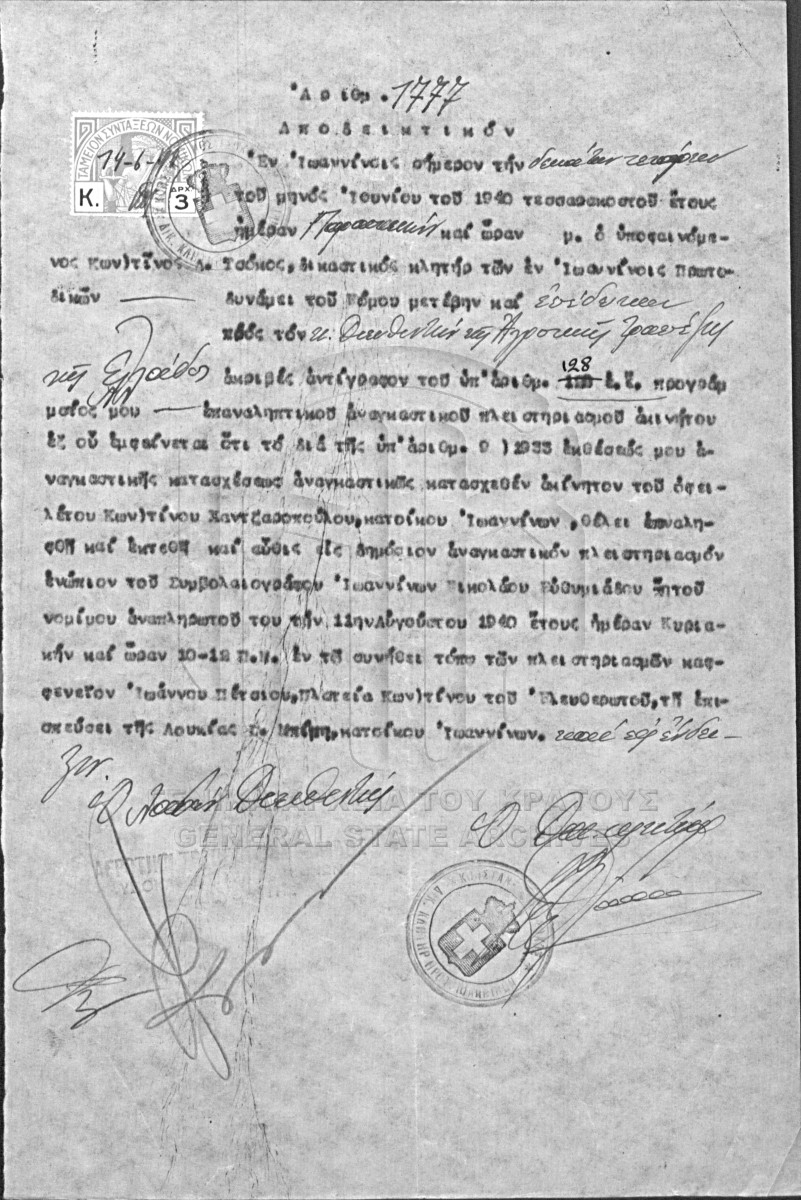 Ἀριθμ. 1777
Ἀποδεικτικόν
ΤΑΜΕΙΟΝ ΣΥΝΤΑΞΕΩΝ ΝΟΜΙΚΩΝ
14-6-40
Κ. ΔΡΧ 3
Ἐν Ἰωαννίνοις σήμερον τήν δεκάτην τετάρτην
τοῦ μηνός Ἰουνίου τοῦ 1940 τεσσαρακοστοῦ ἔτους
ἡμέραν Παρασκευήν καί ὥραν μ. ὁ ὑποφαινόμε-
νος Κων)τῖνος Δ. Τσόκος, δικαστικός κλητήρ τῶν ἐν Ἰωαννίνοις Πρωτο-
δικῶν — δυνάμει τοῦ Νόμου μετέβην καί ἐπέδωκα
πρός τόν κ. Διευθυντήν τῆς Ἀγροτικῆς Τραπέζης
τῆς Ἑλλάδος ἀκριβές ἀντίγραφον τοῦ ὑπ' ἀριθμ. 128 ἐ.ἔ. προγράμ
ματος μου — ἐπαναληπτικοῦ ἀναγκαστικοῦ πλειστηριασμοῦ ἀκινήτου
ἐξ οὗ ἐμφαίνεται ὅτι τό διά τῆς ὑπ' ἀριθμ. 9 ) 1933 ἐκθέσεώς μου ἀ-
ναγκαστικῆς κατασχέσεως ἀναγκαστικῶς κατασχεθέν ἀκίνητον τοῦ ὀφει-
λέτου Κων)τίνου Χαντζαροπούλου, κατοίκου Ἰωαννίνων, θέλει ἐπαναλη-
φθῆ καί ἐκτεθῆ καί αὖθις εἰς δημόσιον ἀναγκαστικόν πλειστηριασμόν
ἐνώπιον τοῦ Συμβολαιογράφου Ἰωαννίνων Νικολάου Εὐθυμιάδου ἤ τοῦ
νομίμου ἀναπληρωτοῦ του τήν 11ην Αὐγούστου 1940 ἔτους ἡμέραν Κυρια-
κήν καί ὥραν 10-12 Π.Μ. ἐν τῶ συνήθει τόπω τῶν πλειστηριασμῶν καφ-
φενεῖον Ἰωάννου Πέτσιου, Πλατεῖα Κων)τίνου τοῦ Ἐλευθερωτοῦ, τῆ ἐπι-
σπεύσει τῆς Λουκίας Γ. Μπίμη, κατοίκου Ἰωαννίνων.
Ὁ Διευθυντής
Ὁ
ΓΕΝΙΚΑ ΑΡΧΕΙΑ ΤΟΥ ΚΡΑΤΟΥΣ
GENERAL STATE ARCHIVES